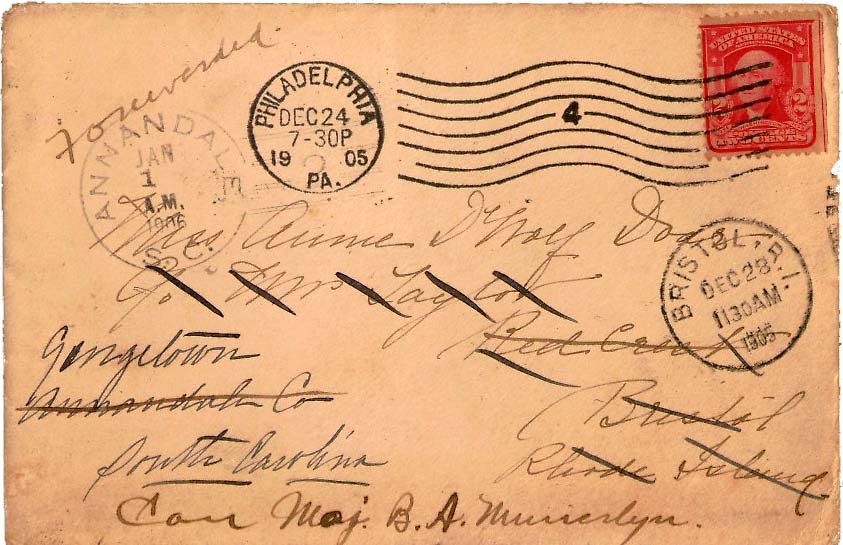 Forwarded.
ANNANDALE
JAN
1
A.M.
1906
S.C.
PHILADELPHIA
DEC 24
7-30P
19 05
PA.
4
UNITED STATES
OF AMERICA
2 2
Miss Annie D'Wolf
c/o Mrs Taylor
Bristol
Rhode Island
BRISTOL, R.I.
DEC 28
1130AM
1905
Georgetown
Annandale Co
South Carolina
Care Maj. B. A. Munnerlyn.